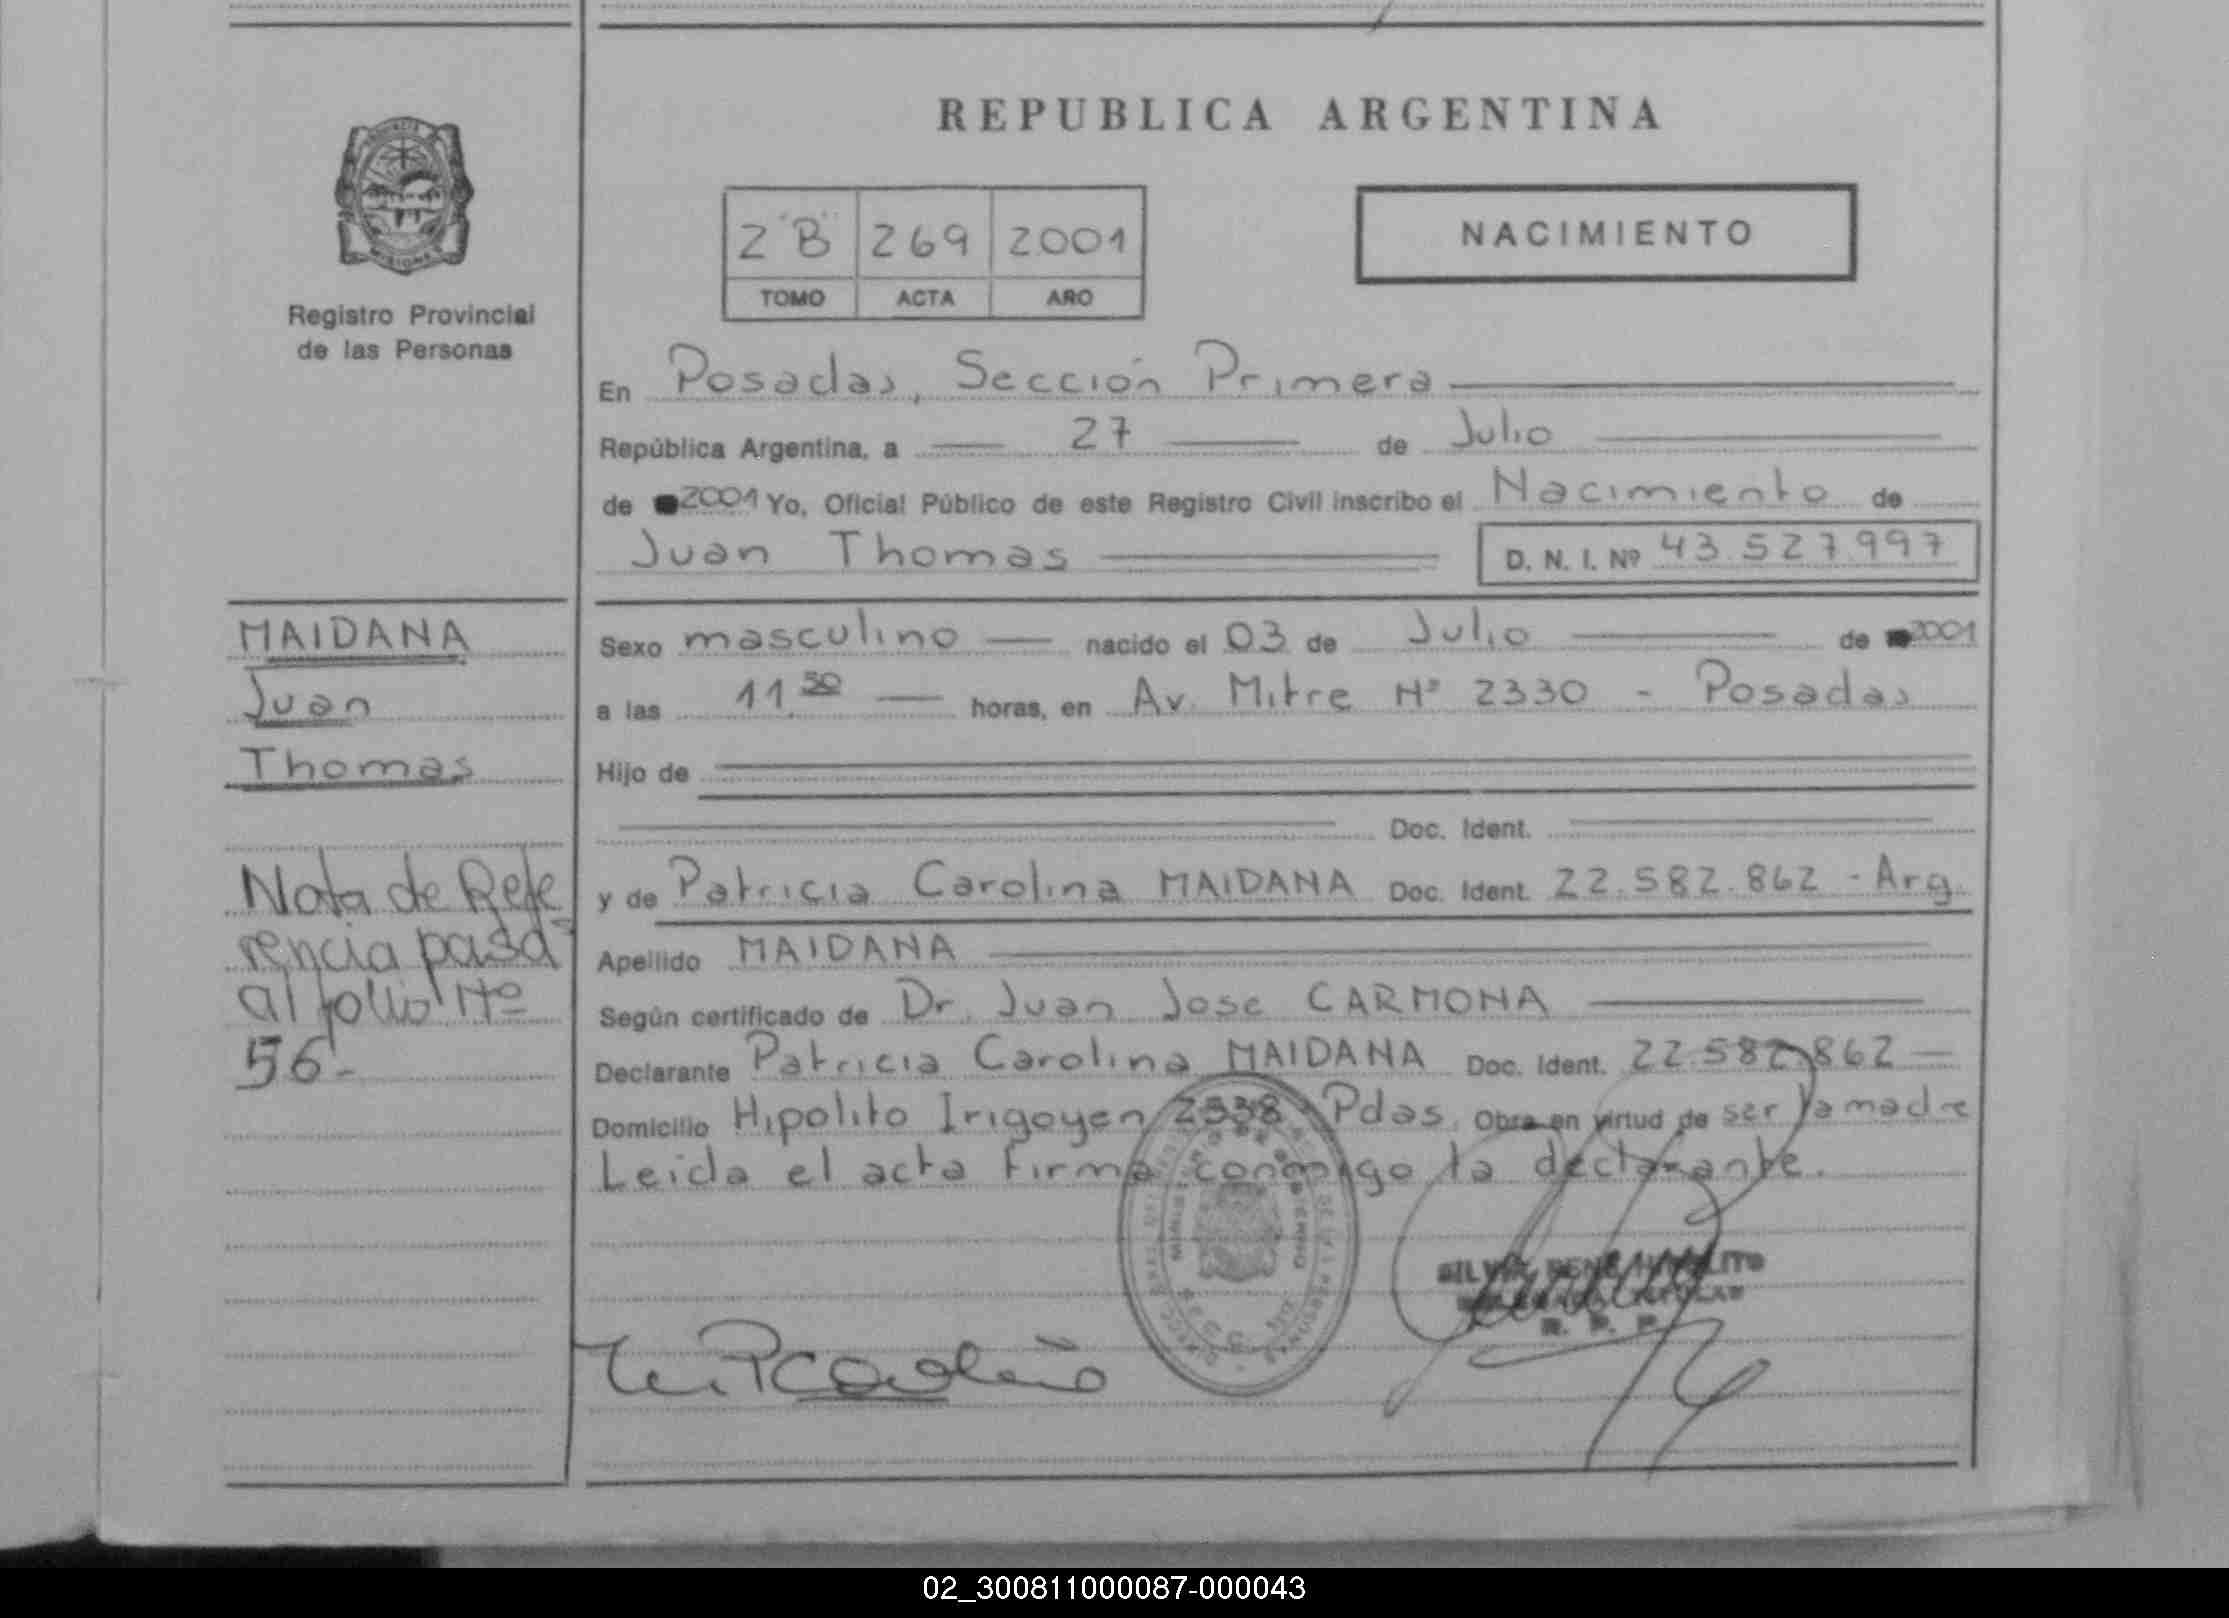 REPUBLICA ARGENTINA
2 "B" 269 2001
TOMO ACTA AÑO
NACIMIENTO
Registro Provincial
de las Personas
En Posadas, Sección Primera
República Argentina, a 27 de Julio
de 2001 Yo, Oficial Público de este Registro Civil inscribo el Nacimiento de
Juan Thomas D. N. I. Nº 43.527.997
MAIDANA
Juan
Thomas
Nota de Refe
rencia pasa
al folio Nº
56.-
Sexo masculino nacido el 03 de Julio de 2001
a las 11 50 horas, en Av. Mitre Nº 2330 - Posadas
Hijo de
Doc. Ident.
y de Patricia Carolina MAIDANA Doc. Ident. 22.582.862 - Arg.
Apellido MAIDANA
Según certificado de Dr. Juan Jose CARMONA
Declarante Patricia Carolina MAIDANA Doc. Ident. 22.582.862
Domicilio Hipolito Irigoyen 2338 Pdas. Obra en virtud de ser la madre
Leida el acta firma conmigo la declarante.
MINISTERIO DE GOBIERNO
R. P. P.
02_300811000087-000043